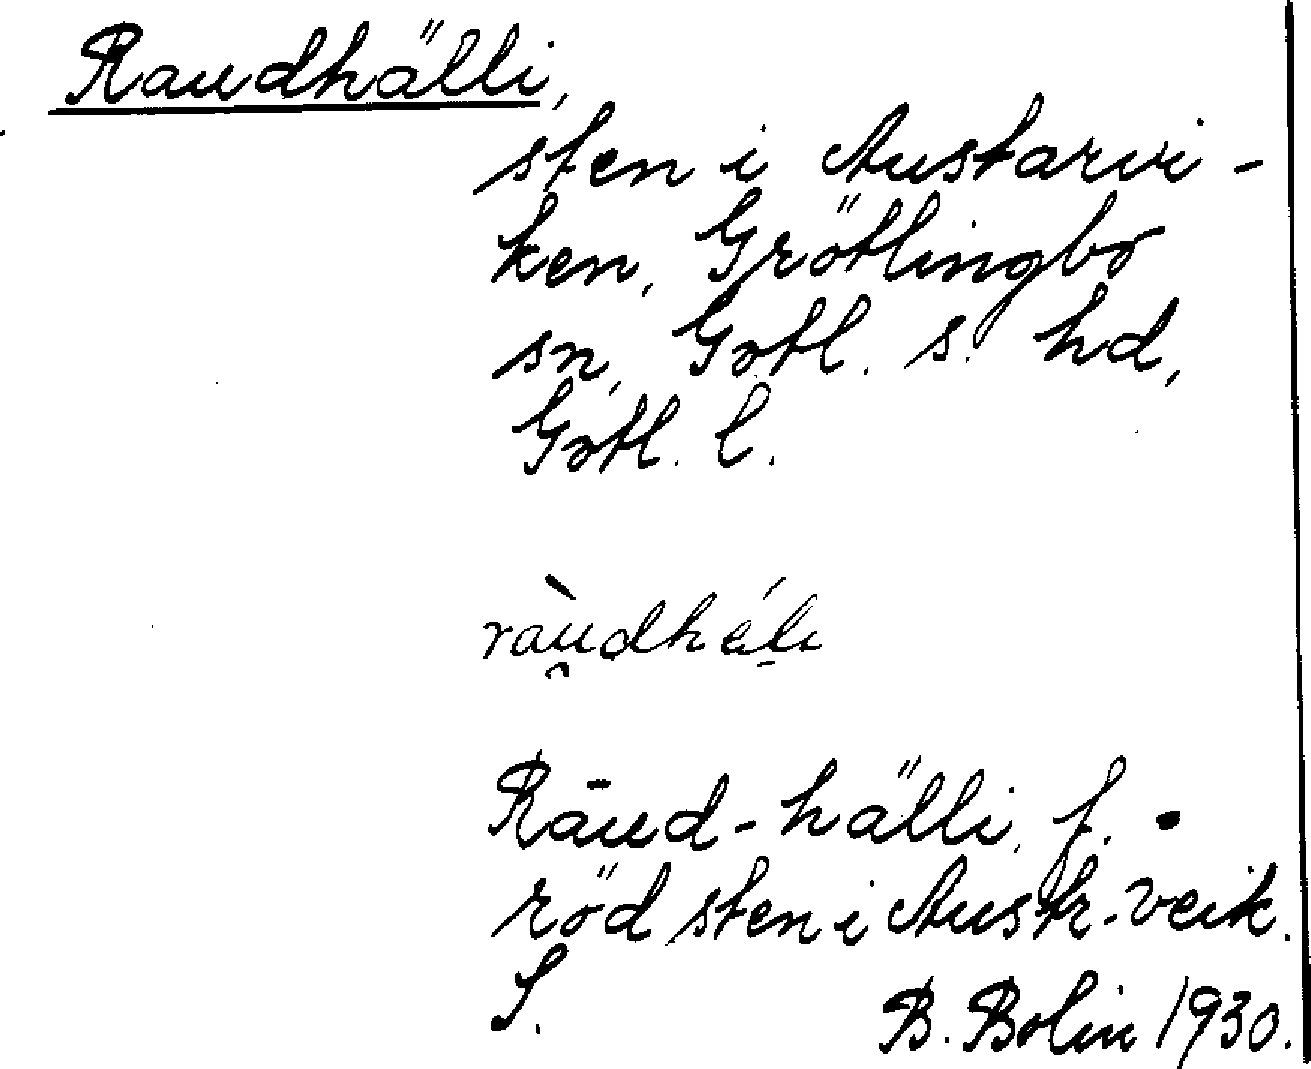 Raudhälli,
sten i Austarvi-
ken, Grötlingbo
sn, Gotl. s. hd,
Gotl. l.
ràudháli
Rāud-hälli, f.
röd sten i Austr-veik.
S.
B. Bolin 1930.